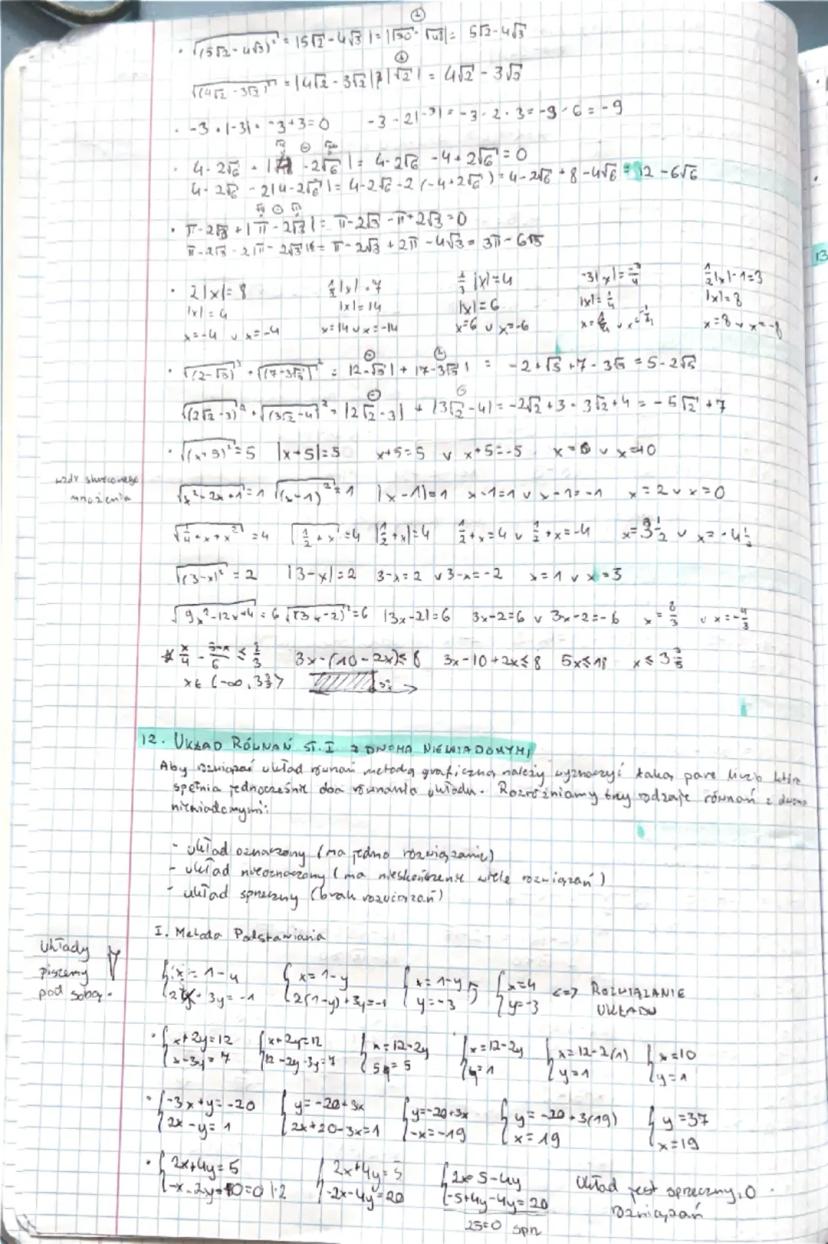 · √(5√2-4√3)² = |5√2-4√3| = |√50-√48| = 5√2-4√3
√(4√2-3√3)² = |4√2-3√3| = 4√2-3√3
· -3+|-3| = -3+3=0 -3-2|-3| = -3-2·3=-3-6=-9
· 4-2√6 + |4-2√6| = 4-2√6-4+2√6=0
4-2√6-2|4-2√6| = 4-2√6-2(-4+2√6)=4-2√6+8-4√6=12-6√6
· π-2√3+|π-2√3| = π-2√3-π+2√3=0
π-2√3-2|π-2√3| = π-2√3+2π-4√3=3π-6√3
· 2|x|=8 ½|x|=7 ⅔|x|=4 -3|x|=-¾ ½|x|-1=3
|x|=4 |x|=14 |x|=6 |x|=¼ |x|=8
x=-4 ∨ x=-4 x=14 ∨ x=-14 x=6 ∨ x=-6 x=¼ ∨ x=-¼ x=8 ∨ x=-8
· √(2-√3)² + √(7-3√3)² = |2-√3| + |7-3√3| = -2+√3+7-3√3=5-2√3
√(2√2-3)² + √(3√2-4)² = |2√2-3| + |3√2-4| = -2√2+3-3√2+4=-5√2+7
· √(x+5)²=5 |x+5|=5 x+5=5 ∨ x+5=-5 x=0 ∨ x=-10
wzór skróconego
mnożenia
√x²-2x+1=1 √(x-1)²=1 |x-1|=1 x-1=1 ∨ x-1=-1 x=2 ∨ x=0
√¼+x+x²=4 √½+x=4 |½+x|=4 ½+x=4 ∨ ½+x=-4 x=3½ ∨ x=-4½
√(3-x)²=2 |3-x|=2 3-x=2 ∨ 3-x=-2 x=1 ∨ x=3
√9x²-12x+4=6 √(3x-2)²=6 |3x-2|=6 3x-2=6 ∨ 3x-2=-6 x=8/3 ∨ x=-4/3
* x/4 - 5-x/6 ≤ 2/3 3x-(10-2x)≤8 3x-10+2x≤8 5x≤18 x≤3 3/5
x∈(-∞,3 3/5>
12. UKŁAD RÓWNAŃ ST. I Z DWOMA NIEWIADOMYMI
Aby rozwiązać układ równań metodą graficzną należy wyznaczyć taką parę liczb która
spełnia jednocześnie dwa równania układu. Rozróżniamy trzy rodzaje równań z dwoma
niewiadomymi:
- układ oznaczony (ma jedno rozwiązanie)
- układ nieoznaczony (ma nieskończenie wiele rozwiązań)
- układ sprzeczny (brak rozwiązań)
I. Metoda Podstawiania
Układy
piszemy
pod sobą.
{x=1-y {x=1-y {x=1-y {x=4 <=> ROZWIĄZANIE
{2x+3y=-1 {2(1-y)+3y=-1 {y=-3 {y=-3 UKŁADU
· {x+2y=12 {x+2y=12 {x=12-2y {x=12-2y {x=12-2(1) {x=10
{x-3y=7 {12-2y-3y=7 {5y=5 {y=1 {y=1 {y=1
· {-3x+y=-20 {y=-20+3x {y=-20+3x {y=-20+3(19) {y=37
{2x-y=1 {2x+20-3x=1 {-x=-19 {x=19 {x=19
· {2x+4y=5 {2x+4y=5 {2x=5-4y Układ jest sprzeczny, 0
{-x-2y-10=0 |·2 {-2x-4y=20 {-5+4y-4y=20 rozwiązań
25=0 spn